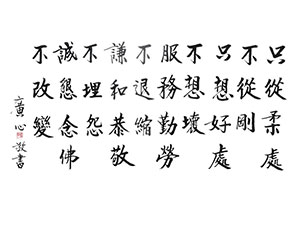 只從柔處
不從剛
只想好處
不想壞
服務勤勞
不退縮
謙和恭敬
不埋怨
誠懇念佛
不改變
廣心敬書